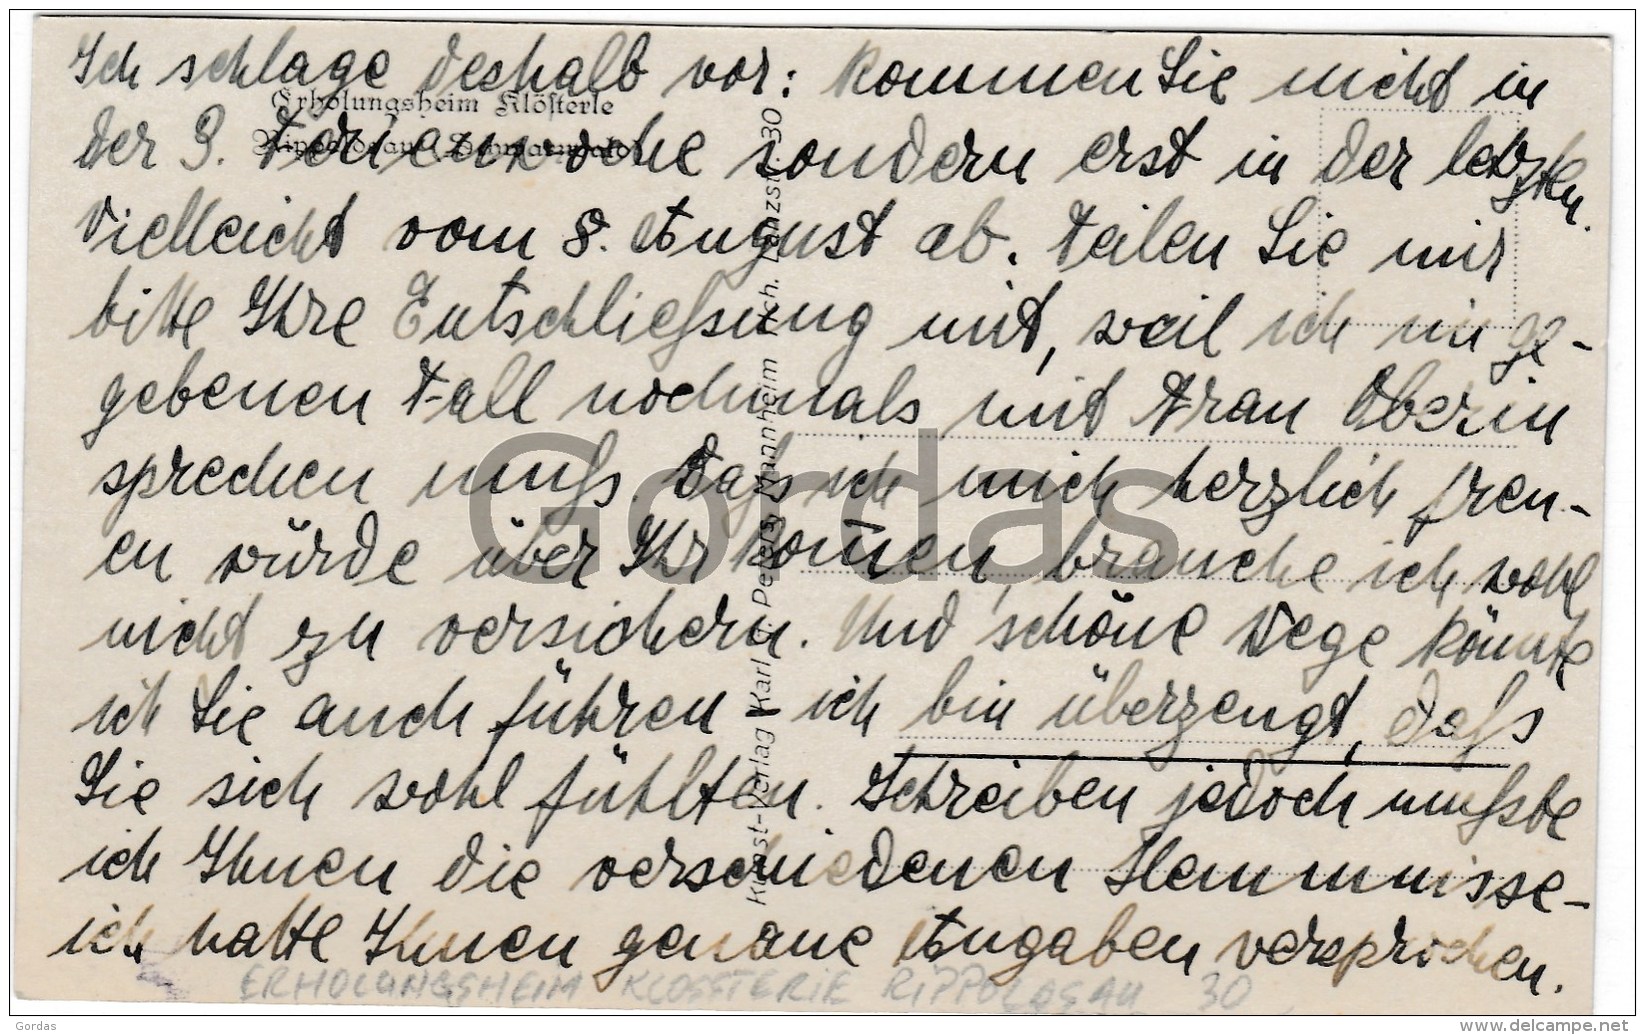 Ich schlage deshalb vor: Kommen Sie nicht in
Erholungsheim Klösterle
der 3. Ferienwoche sondern erst in der letzten.
vielleicht vom 8. August ab. Teilen Sie mir
bitte Ihre Entschließung mit, weil ich im ge-
gebenen Fall nochmals mit Frau Oberin
sprechen muß. Daß ich mich herzlich freu-
en würde über Ihr Kom̄en, brauche ich wohl
nicht zu versichern. Und schöne Wege könnte
ich Sie auch führen – ich bin überzeugt, daß
Sie sich wohl fühlten. Schreiben jedoch mußte
ich Ihnen die verschiedenen Hemmnisse –
ich hatte Ihnen genaue Angaben versprochen.
Kunst-Verlag Karl F. Peters Mannheim Rich. Lanzstr. 30
ERHOLUNGSHEIM KLOSSTERIE RIPPOLDSAU 30
Gordas
Gordas
www.delcampe.net